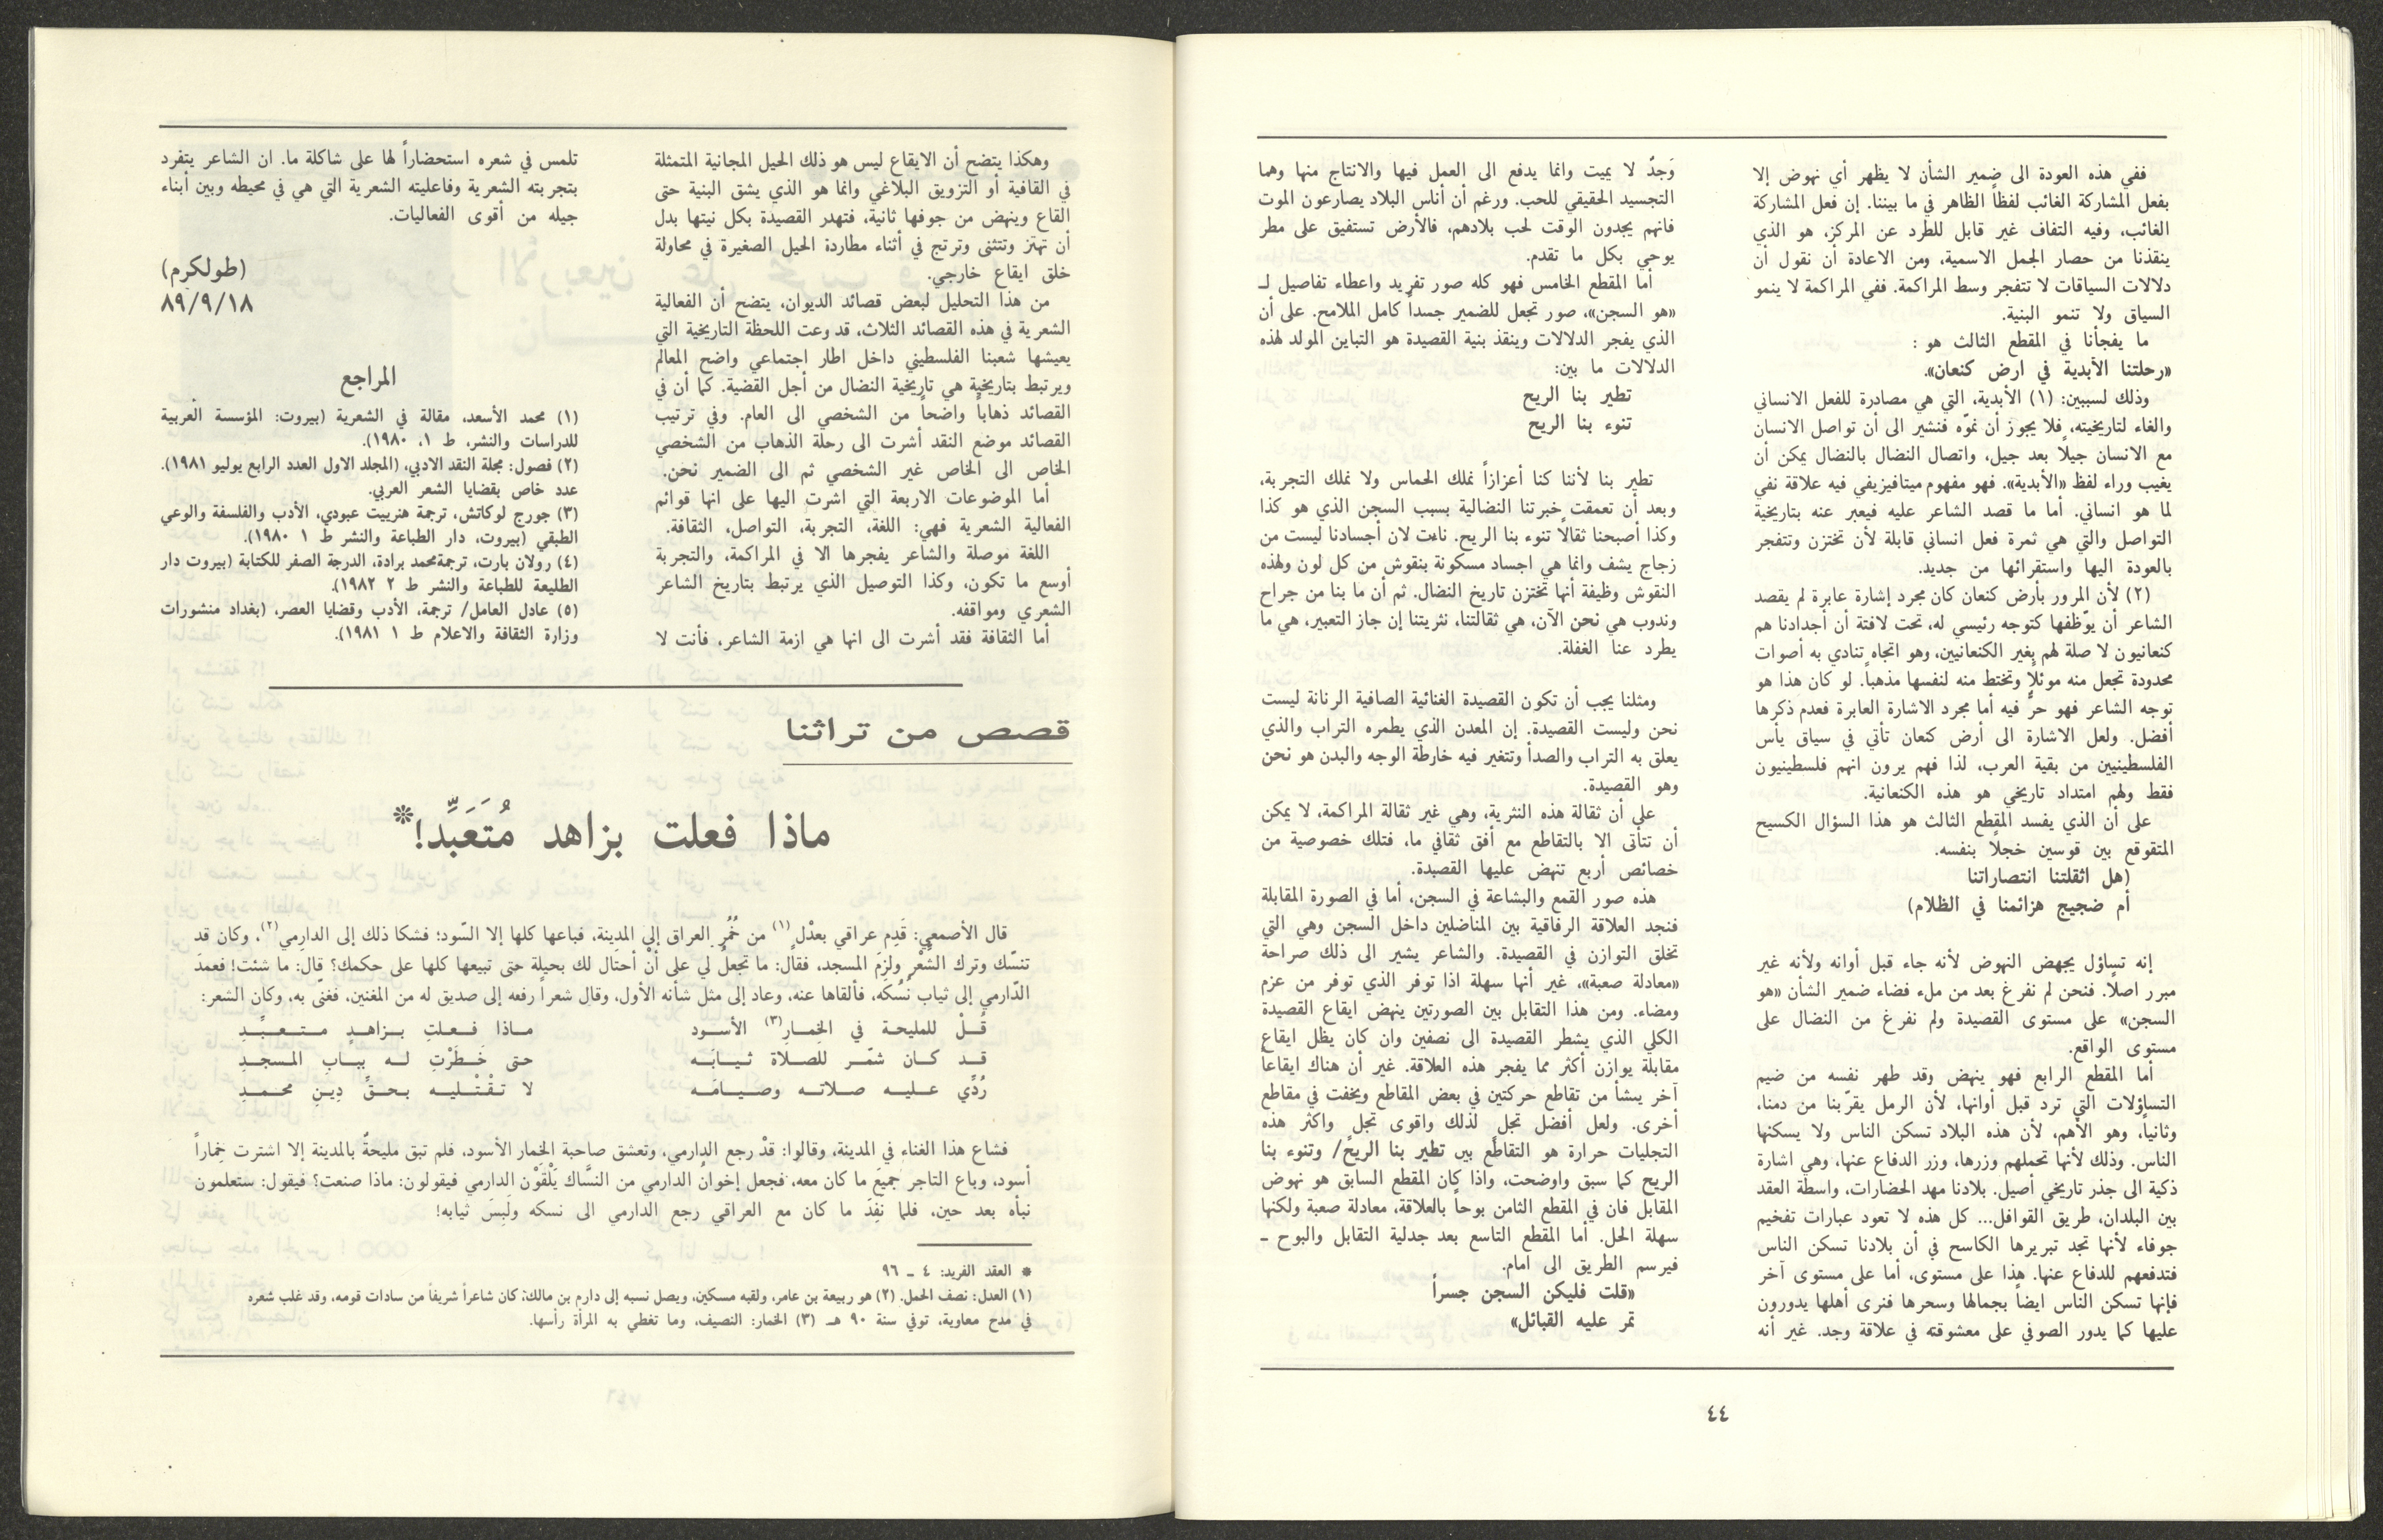 ففي هذه العودة الى ضمير الشأن لا يظهر أي نهوض إلا
بفعل المشاركة الغائب لفظاً الظاهر في ما بيننا. إن فعل المشاركة
الغائب، وفيه التفاف غير قابل للطرد عن المركز، هو الذي
ينقذنا من حصار الجمل الاسمية، ومن الاعادة أن نقول أن
دلالات السياقات لا تتفجر وسط المراكمة. ففي المراكمة لا ينمو
السياق ولا تنمو البنية.
ما يفجأنا في المقطع الثالث هو :
«رحلتنا الأبدية في ارض كنعان».
وذلك لسببين: (١) الأبدية، التي هي مصادرة للفعل الانساني
والغاء لتاريخيته، فلا يجوز أن نموّه فنشير الى أن تواصل الانسان
مع الانسان جيلاً بعد جيل، واتصال النضال بالنضال يمكن أن
يغيب وراء لفظ «الأبدية». فهو مفهوم ميتافيزيفي فيه علاقة نفي
لما هو انساني. أما ما قصد الشاعر عليه فيعبر عنه بتاريخية
التواصل والتي هي ثمرة فعل انساني قابلة لأن تختزن وتتفجر
بالعودة اليها واستقرائها من جديد.
(٢) لأن المرور بأرض كنعان كان مجرد إشارة عابرة لم يقصد
الشاعر أن يوّظفها كتوجه رئيسي له، تحت لافتة أن أجدادنا هم
كنعانيون لا صلة لهم بغير الكنعانيين، وهو اتجاه تنادي به أصوات
محدودة تجعل منه موئلاً وتختط منه لنفسها مذهباً. لو كان هذا هو
توجه الشاعر فهو حرٌّ فيه أما مجرد الاشارة العابرة فعدم ذكرها
أفضل. ولعل الاشارة الى أرض كنعان تأتي في سياق يأس
الفلسطينيين من بقية العرب، لذا فهم يرون انهم فلسطينيون
فقط ولهم امتداد تاريخي هو هذه الكنعانية.
على أن الذي يفسد المقطع الثالث هو هذا السؤال الكسيح
المتقوقع بين قوسين خجلاً بنفسه.
(هل اثقلتنا انتصاراتنا
أم ضجيج هزائمنا في الظلام)
إنه تساؤل يجهض النهوض لأنه جاء قبل أوانه ولأنه غير
مبرر اصلاً. فنحن لم نفرغ بعد من ملء فضاء ضمير الشأن «هو
السجن» على مستوى القصيدة ولم نفرغ من النضال على
مستوى الواقع.
أما المقطع الرابع فهو ينهض وقد طهر نفسه من ضيم
التساؤلات التي ترد قبل أوانها، لأن الرمل يقرّبنا من دمنا،
وثانياً، وهو الأهم، لأن هذه البلاد تسكن الناس ولا يسكنها
الناس. وذلك لأنها تحملهم وزرها، وزر الدفاع عنها، وهي اشارة
ذكية الى جذر تاريخي أصيل. بلادنا مهد الحضارات، واسطة العقد
بين البلدان، طريق القوافل... كل هذه لا تعود عبارات تفخيم
جوفاء لأنها تجد تبريرها الكاسح في أن بلادنا تسكن الناس
فتدفعهم للدفاع عنها. هذا على مستوى، أما على مستوى آخر
فإنها تسكن الناس ايضاً بجمالها وسحرها فنرى أهلها يدورون
عليها كما يدور الصوفي على معشوقته في علاقة وجد. غير أنه
وَجدّ لا يميت وانما يدفع الى العمل فيها والانتاج منها وهما
التجسيد الحقيقي للحب. ورغم أن أناس البلاد يصارعون الموت
فانهم يجدون الوقت لحب بلادهم، فالأرض تستفيق على مطر
يوحي بكل ما تقدم.
أما المقطع الخامس فهو كله صور تفريد واعطاء تفاصيل لـ
«هو السجن»، صور تجعل للضمير جسداً كامل الملامح. على أن
الذي يفجر الدلالات وينقذ بنية القصيدة هو التباين المولد لهذه
الدلالات ما بين:
تطير بنا الريح
تنوء بنا الريح
تطير بنا لأننا كنا أعزازاً نملك الحماس ولا نملك التجربة،
وبعد أن تعمقت خبرتنا النضالية بسبب السجن الذي هو كذا
وكذا أصبحنا ثقالاً تنوء بنا الريح. ناءت لان أجسادنا ليست من
زجاج يشف وانما هي اجساد مسكونة بنقوش من كل لون ولهذه
النقوش وظيفة أنها تختزن تاريخ النضال. ثم أن ما بنا من جراح
وندوب هي نحن الآن، هي ثقالتنا، نثريتنا إن جاز التعبير، هي ما
يطرد عنا الغفلة.
ومثلنا يجب أن تكون القصيدة الغنائية الصافية الرنانة ليست
نحن وليست القصيدة. إن المعدن الذي يطمره التراب والذي
يعلق به التراب والصدأ وتتغير فيه خارطة الوجه والبدن هو نحن
وهو القصيدة.
على أن ثقالة هذه النثرية، وهي غير ثقالة المراكمة، لا يمكن
أن تتأتى الا بالتقاطع مع أفق ثقافي ما، فتلك خصوصية من
خصائص أربع تنهض عليها القصيدة.
هذه صور القمع والبشاعة في السجن، أما في الصورة المقابلة
فنجد العلاقة الرفاقية بين المناضلين داخل السجن وهي التي
تخلق التوازن في القصيدة. والشاعر يشير الى ذلك صراحة
«معادلة صعبة»، غير أنها سهلة اذا توفر الذي توفر من عزم
ومضاء. ومن هذا التقابل بين الصورتين ينهض ايقاع القصيدة
الكلي الذي يشطر القصيدة الى نصفين وان كان يظل ايقاع
مقابلة يوازن أكثر مما يفجر هذه العلاقة. غير أن هناك ايقاعاً
آخر ينشأ من تقاطع حركتين في بعض المقاطع ويخفت في مقاطع
أخرى. ولعل أفضل تجل لذلك واقوى تجل واكثر هذه
التجليات حرارة هو التقاطع بين تطير بنا الريح/ وتنوء بنا
الريح كما سبق واوضحت، واذا كان المقطع السابق هو نهوض
المقابل فان في المقطع الثامن بوحاً بالعلاقة، معادلة صعبة ولكنها
سهلة الحل. أما المقطع التاسع بعد جدلية التقابل والبوح ـ
فيرسم الطريق الى امام.
«قلت فليكن السجن جسراً
تمر عليه القبائل»
٤٤
وهكذا يتضح أن الايقاع ليس هو ذلك الحيل المجانية المتمثلة
في القافية أو التزويق البلاغي وانما هو الذي يشق البنية حتى
القاع وينهض من جوفها ثانية، فتهدر القصيدة بكل نيتها بدل
أن تهتز وتتثنى وترتج في أثناء مطاردة الحيل الصغيرة في محاولة
خلق ايقاع خارجي.
من هذا التحليل لبعض قصائد الديوان، يتضح أن الفعالية
الشعرية في هذه القصائد الثلاث، قد وعت اللحظة التاريخية التي
يعيشها شعبنا الفلسطيني داخل اطار اجتماعي واضح المعالم
ويرتبط بتاريخية هي تاريخية النضال من أجل القضية. كما أن في
القصائد ذهاباً واضحاً من الشخصي الى العام. وفي ترتيب
القصائد موضع النقد أشرت الى رحلة الذهاب من الشخصي
الخاص الى الخاص غير الشخصي ثم الى الضمير نحن.
أما الموضوعات الاربعة التي اشرت اليها على انها قوائم
الفعالية الشعرية فهي: اللغة، التجربة، التواصل، الثقافة.
اللغة موصلة والشاعر يفجرها الا في المراكمة، والتجربة
أوسع ما تكون، وكذا التوصيل الذي يرتبط بتاريخ الشاعر
الشعري ومواقفه.
أما الثقافة فقد أشرت الى انها هي ازمة الشاعر، فأنت لا
تلمس في شعره استحضاراً لها على شاكلة ما. ان الشاعر يتفرد
بتجربته الشعرية وفاعليته الشعرية التي هي في محيطه وبين أبناء
جيله من أقوى الفعاليات.
(طولكرم)
٨٩/٩/١٨
المراجع
(١) محمد الأسعد، مقالة في الشعرية (بيروت: المؤسسة العربية
للدراسات والنشر، ط ١، ١٩٨٠).
(٢) فصول: مجلة النقد الادبي، (المجلد الاول العدد الرابع يوليو ١٩٨١).
عدد خاص بقضايا الشعر العربي.
(٣) جورج لوكاتش، ترجمة هنرييت عبودي، الأدب والفلسفة والوعي
الطبقي (بيروت، دار الطباعة والنشر ط ١ ١٩٨٠).
(٤) رولان بارت، ترجمةمحمد برادة، الدرجة الصفر للكتابة (بيروت دار
الطليعة للطباعة والنشر ط ٢ ١٩٨٢).
(٥) عادل العامل/ ترجمة، الأدب وقضايا العصر، (بغداد منشورات
وزارة الثقافة والاعلام ط ١ ١٩٨١).
قصص من تراثنا
ماذا فعلت بزاهد مُتَعَبِّد!*
قال الأصمعي: قَدِم عراقي بعدْل(١) من خُمُرِ العراق إلى المدينة، فباعها كلها إلا السّود؛ فشكا ذلك إلى الدارِمي(٢)، وكان قد
تنسّك وترك الشِّعْر ولزِمَ المسجد، فقال: ما تجعلُ لي على أنْ أحتال لك بحيلة حتى تبيعها كلها على حكمك؟ قال: ما شئت! فعمدَ
الدّارمي إلى ثياب نُسُكه، فألقاها عنه، وعاد إلى مثل شأنه الأول، وقال شعراً رفعه إلى صديق له من المغنين، فغنّى به، وكان الشعر:
قُــلْ للمليحة في الخِمـارِ(٣) الأســود مــاذا فــعــلتِ بــزاهــدٍ مــتــعــبَّــدِ
قــد كــان شمّــر للصــلاة ثيــابَــه حتى خَــطَرْتِ لــه ببــابِ المسجــدِ
رُدِّي عــليــه صــلاتــه وصيــامَــه لا تــقْتُــليــه بــحــقِّ دِيــنِ محــمــدِ
فشاع هذا الغناء في المدينة، وقالوا: قدْ رجع الدارمي، وتعشق صاحبة الخمار الأسود، فلم تبق مليحةٌ بالمدينة إلا اشترت خِماراً
أسود، وباع التاجر جميعَ ما كان معه، فجعل إخوانُ الدارمي من النسَّاك يَلْقَوْن الدارمي فيقولون: ماذا صنعت؟ فيقول: ستعلمون
نبأه بعد حين، فلما نفِدَ ما كان مع العراقي رجع الدارمي الى نسكه ولَبِسَ ثيابه!
* العقد الفريد: ٤ ـ ٩٦
(١) العدل: نصف الحمل. (٢) هو ربيعة بن عامر، ولقبه مسكين، ويصل نسبه إلى دارم بن مالك: كان شاعراً شريفاً من سادات قومه، وقد غلب شعره
في مدح معاوية، توفي سنة ٩٠ هـ (٣) الخمار: النصيف، وما تغطي به المرأة رأسها.